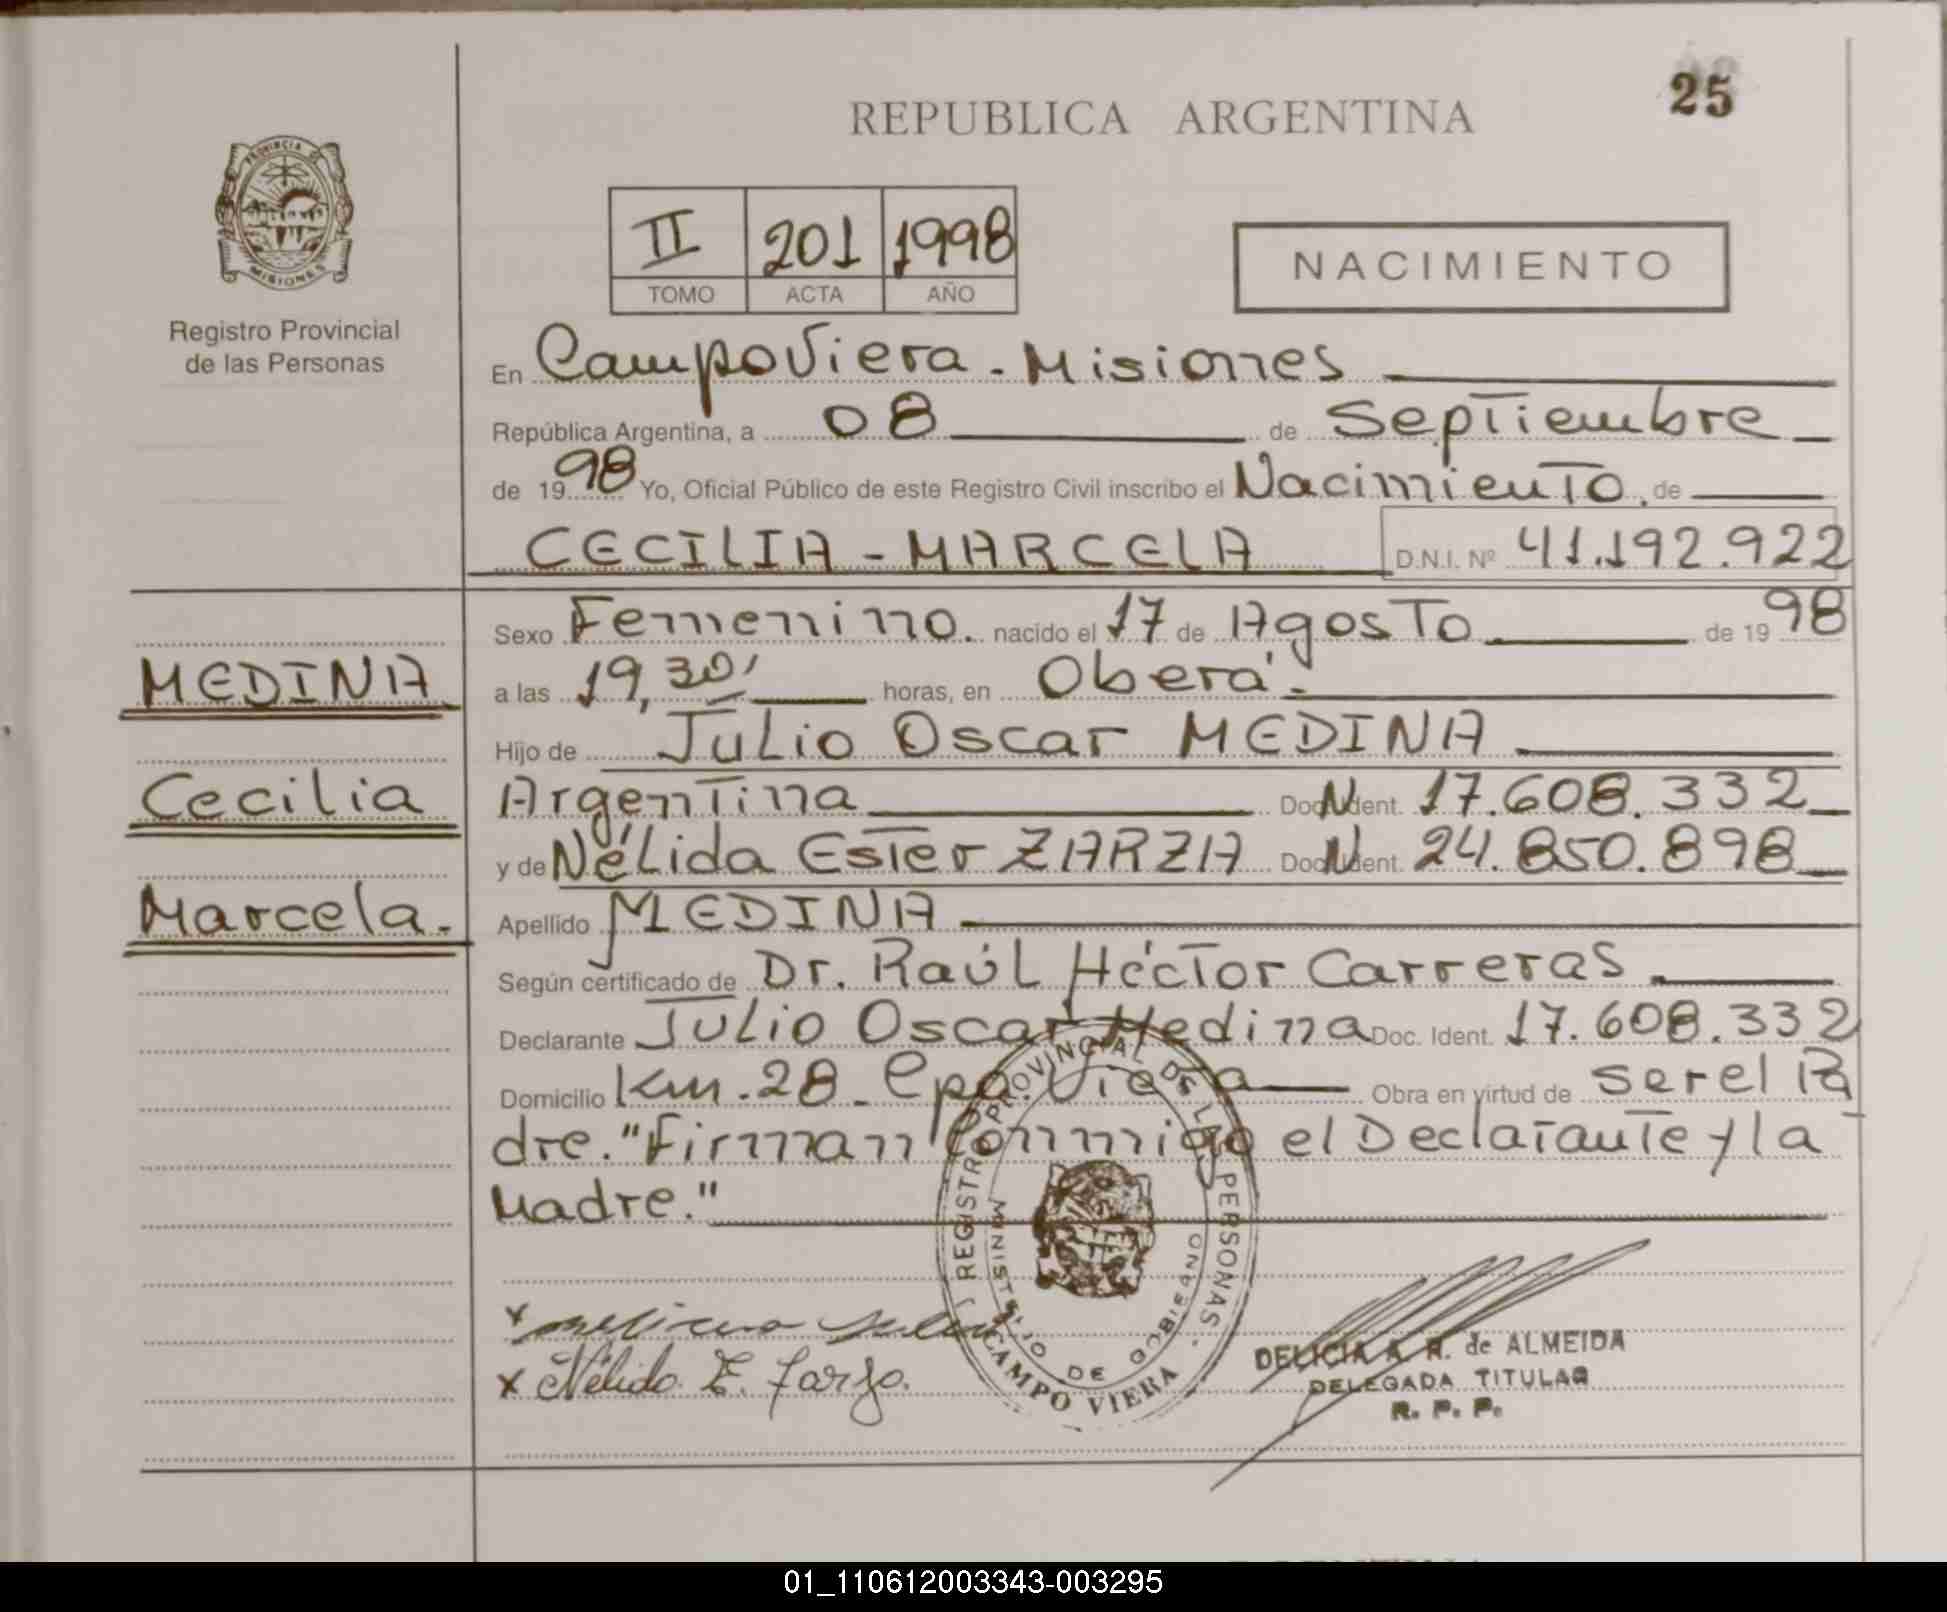 25
REPUBLICA ARGENTINA
PROVINCIA DE
MISIONES
Registro Provincial
de las Personas
II 201 1998
TOMO ACTA AÑO
NACIMIENTO
En Campo Viera - Misiones
República Argentina, a 08 de Septiembre
de 1998 Yo, Oficial Público de este Registro Civil inscribo el Nacimiento de
CECILIA - MARCELA D.N.I. Nº 41.192.922
Sexo Femenino. nacido el 17 de Agosto de 1998
MEDINA
a las 19,30' horas, en Oberá.
Hijo de Julio Oscar MEDINA
Cecilia
Argentina Doc. Ident. N 17.608.332
y de Nélida Ester ZARZA Doc. Ident. N 24.850.898
Marcela.
Apellido MEDINA
Según certificado de Dr. Raúl Héctor Carreras
Declarante Julio Oscar Medina Doc. Ident. 17.608.332
Domicilio Km. 28 - Cpo. Viera Obra en virtud de ser el Pa
dre. "Firman Conmigo el Declarante y la
Madre."
REGISTRO PROVINCIAL DE LAS PERSONAS
MINISTERIO DE GOBIERNO
CAMPO VIERA
x Medina Julio
x Nélida E. Zarza.
DELICIA A. R. de ALMEIDA
DELEGADA TITULAR
R. P. P.
01_110612003343-003295